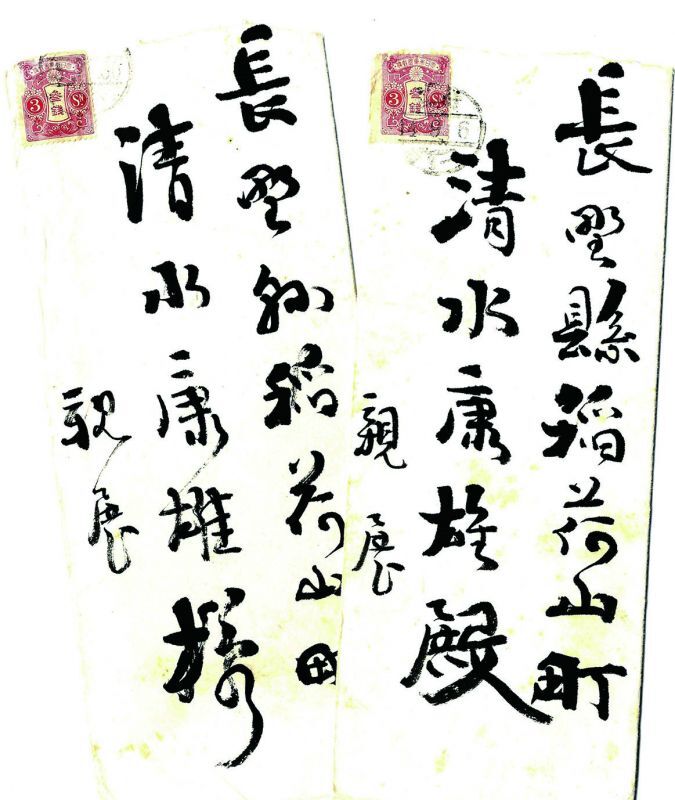 長野縣稲荷山町
清水康雄殿
親展
3
参銭
3
Sn
長野縣稲荷山町
清水康雄様
親展
3
参銭
3
Sn